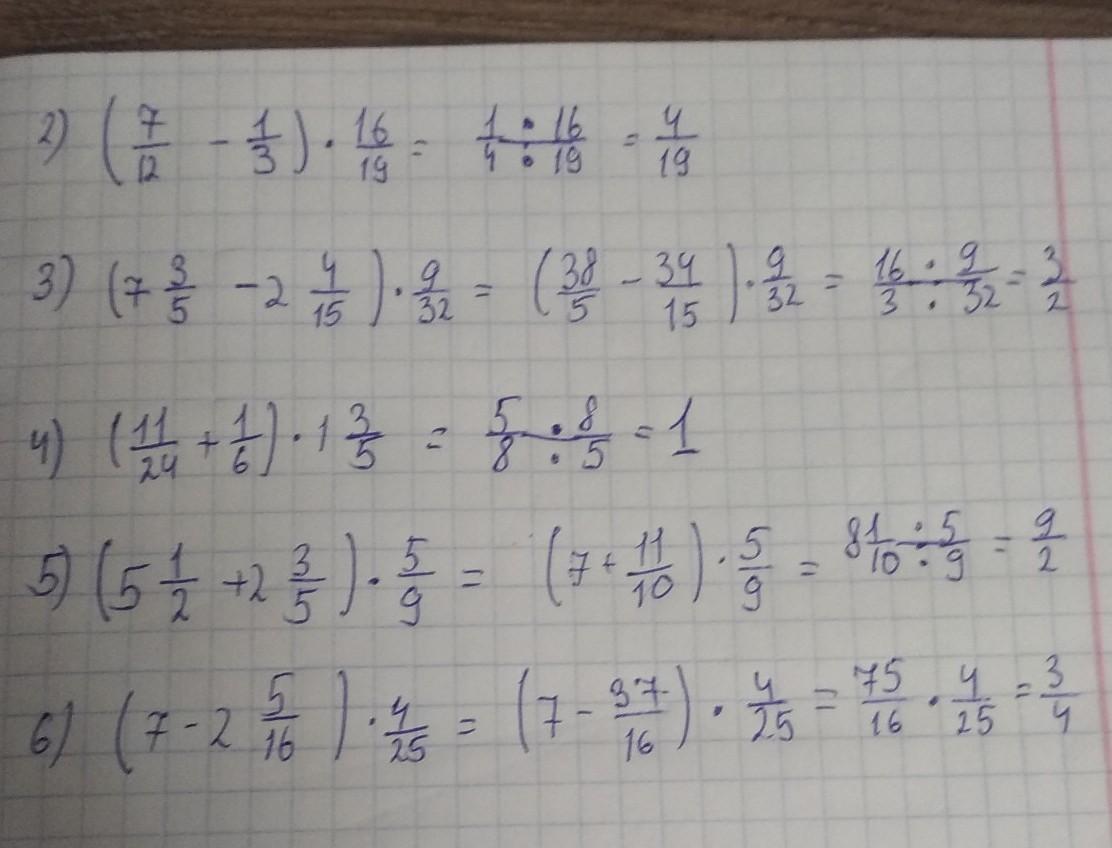 2) (7/12 - 1/3) · 16/19 = 1/4 · 16/19 = 4/19
3) (7 3/5 - 2 4/15) · 9/32 = (38/5 - 34/15) · 9/32 = 16/3 · 9/32 = 3/2
4) (11/24 + 1/6) · 1 3/5 = 5/8 · 8/5 = 1
5) (5 1/2 + 2 3/5) · 5/9 = (7 + 11/10) · 5/9 = 81/10 · 5/9 = 9/2
6) (7 - 2 5/16) · 4/25 = (7 - 37/16) · 4/25 = 75/16 · 4/25 = 3/4